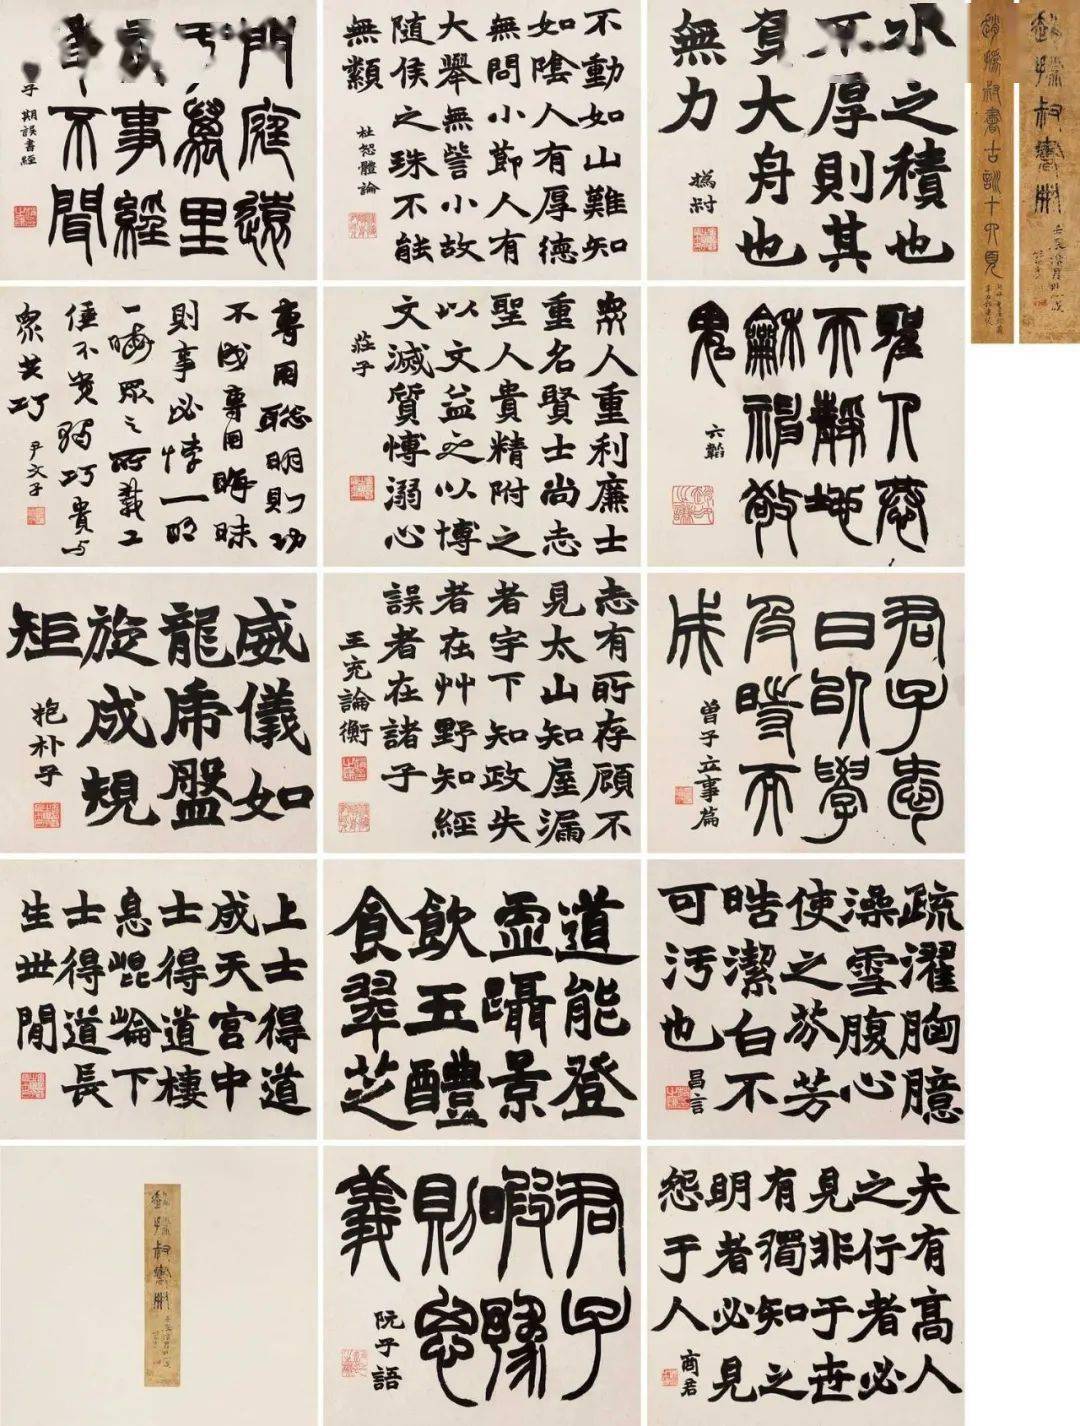 水之積也
不厚則其
負大舟也
無力
撝叔
不動如山難知
如陰人有厚德
無問小節人有
大舉無訾小故
隨侯之珠不能
無纇
杜恕體論
門庭遠
萬里
事經
年不聞
聖人恭
天靜地
龢神敬
鬼
六韜
眾人重利廉士
重名賢士尚志
聖人貴精附之
以文益之以博
文滅質博溺心
莊子
專用聰明則功
不成專用晦昧
則事必悖一明
一晦眾之所載工
倕不貴獨巧貴与
眾共巧
尹文子
君子愛
日以學
及時而
成
曾子立事篇
志有所存顧不
見太山知屋漏
者宇下知政失
者在艸野知經
誤者在諸子
王充論衡
威儀如
龍虎盤
旋成規
矩
抱朴子
疏濯胸臆
澡雪腹心
使之芬芳
皓潔白不
可污也
昌言
道能登
虛躡景
飲玉醴
食翠芝
上士得道
成天宮中
士得道棲
息崐崙下
士得道長
生世閒
夫有高人
之行者必
見非于世
有獨知之
明者必見
怨于人
商君
君子
暇豫
則思
義
阮子語